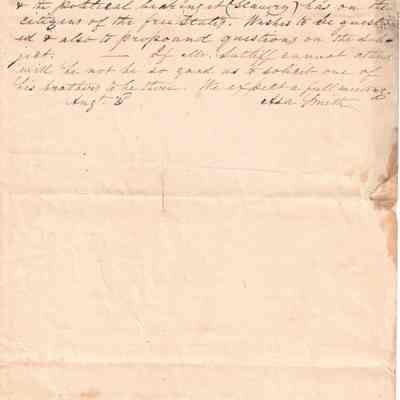 & the political bearing it (Slavery) has on the
citizens of the free States. Wishes to be question
ed & also to propound questions on the sub-
ject. — If Mr. Sutliff cannot attend
will he not be so good as to solicit one of
his brothers to be there. We expect a full meeting
Augt 8 Asa Smith